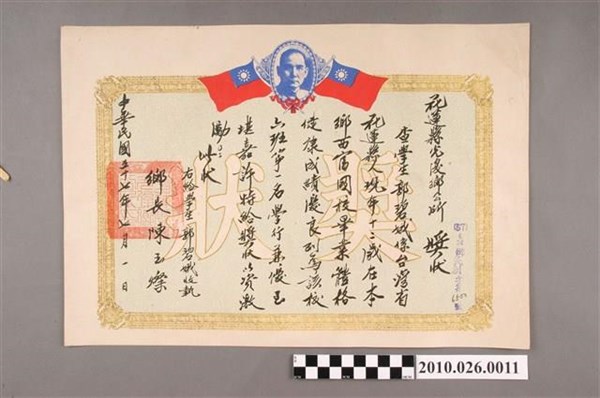 花蓮縣光復鄉公所 獎狀
查學生郭碧娥係台灣省
花蓮縣人現年十 歲在本
鄉西富國校畢業體格
健康成績優良列為該校
六班第 名學行兼優已
堪嘉許特給獎狀以資激
勵
此狀
右給學生郭碧娥收執
鄉長 陳玉燦
中華民國五十七年七月一日
獎狀
2010.026.0011